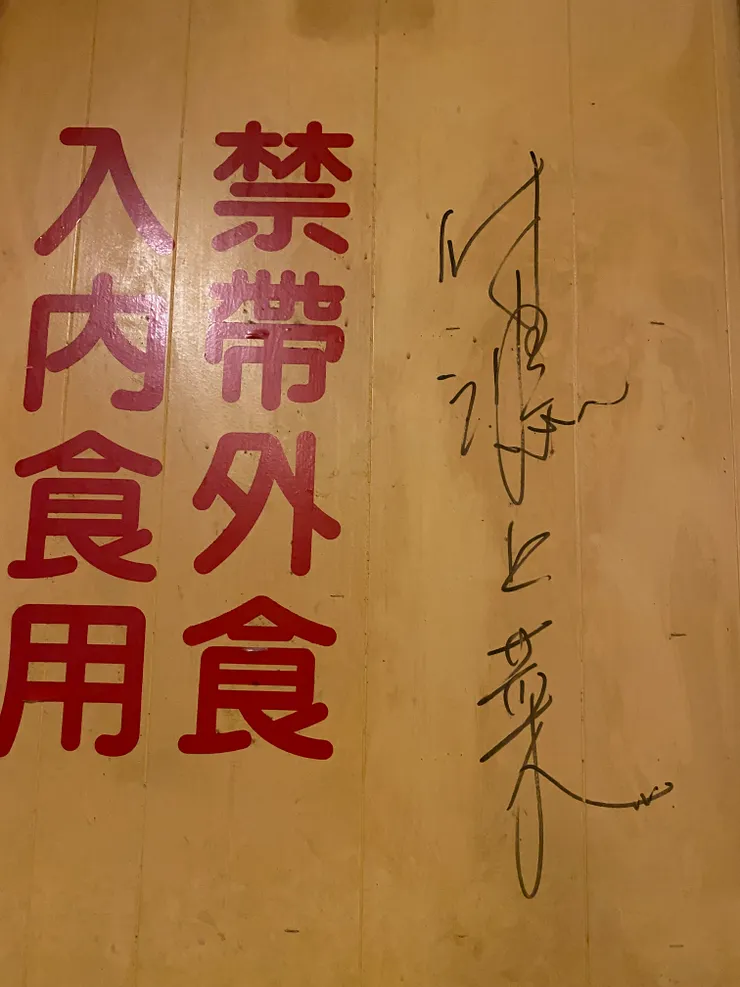 上菜
禁帶外食
入內食用